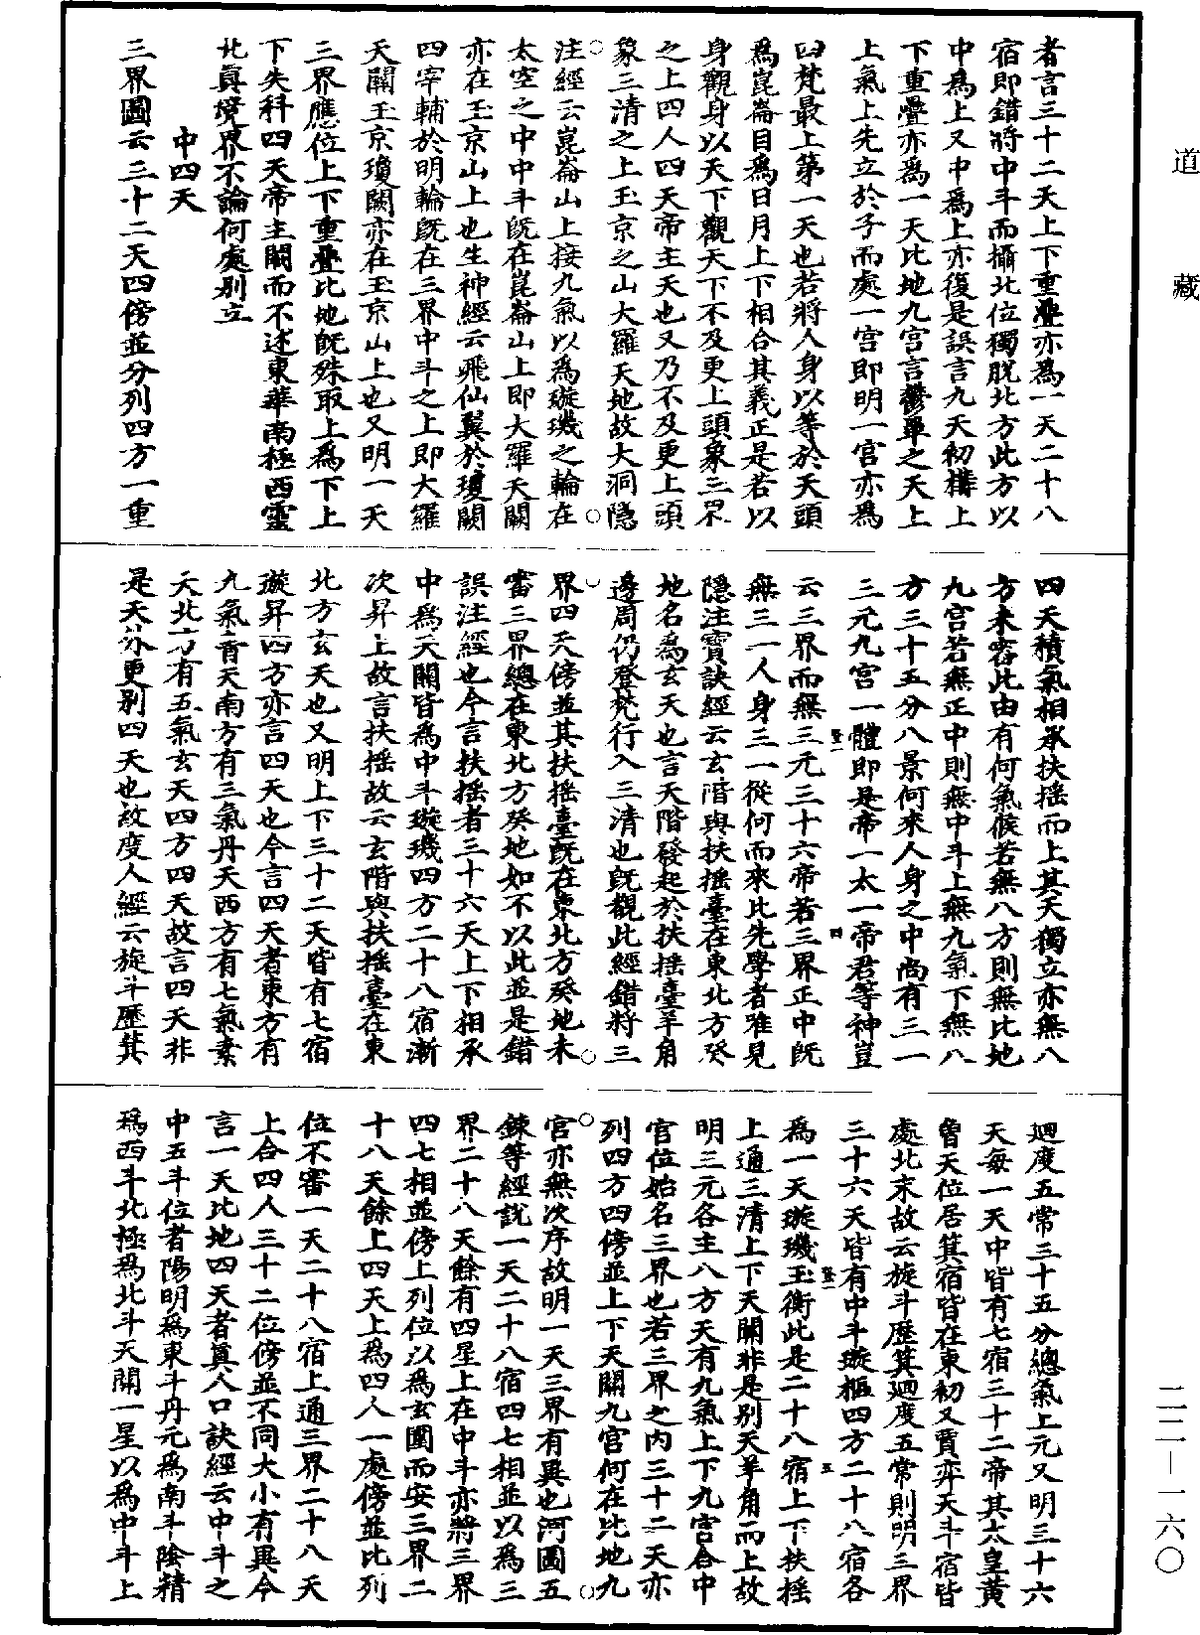 道藏
者言三十二天上下重疊亦爲一天二十八
宿即錯將中斗而攝北位獨脫北方此方以
中爲上又中爲上亦復是誤言九天初構上
下重疊亦爲一天比地九宮言鬱單之天上
上氣上先立於子而處一宮即明一宮亦爲
四梵最上第一天也若將人身以等於天頭
爲崑崙目爲日月上下相合其義正是若以
身觀身以天下觀天下不及更上頭象三界
之上四人四天帝主天也又乃不及更上頭
象三清之上玉京之山大羅天地故大洞隱
注經云崑崙山上接九氣以爲璇璣之輪在
太空之中中斗旣在崑崙山上即大羅天闕
亦在玉京山上也生神經云飛仙翼於瓊闕
四宰輔於明輪旣在三界中斗之上即大羅
天關玉京瓊闕亦在玉京山上也又明一天
三界應位上下重疊比地旣殊取上爲下上
下失科四天帝主關而不述東華南極西靈
北真境界不論何處別立
中四天
三界圖云三十二天四傍並分列四方一重
四天積氣相承扶搖而上其天獨立亦無八
方未審此由有何氣候若無八方則無比地
九宮若無正中則無中斗上無九氣下無八
方三十五分八景何來人身之中尚有三一
三元九宮一體即是帝一太一帝君等神豈
云三界而無三元三十六帝若三界正中旣
無三一人身三一從何而來比先學者雖見
隱注寶訣經云玄階與扶搖臺在東北方癸
地名爲玄天也言天階發起於扶搖臺羊角
邊周仍登梵行入三清也旣觀此經錯將三
界四天傍並其扶搖臺旣在東北方癸地未
審三界總在東北方癸地如不以此並是錯
誤注經也今言扶搖者三十六天上下相承
中爲天關皆爲中斗璇璣四方二十八宿漸
次昇上故言扶搖故云玄階與扶搖臺在東
北方玄天也又明上下三十二天皆有七宿
璇昇四方亦言四天也今言四天者東方有
九氣青天南方有三氣丹天西方有七氣素
天北方有五氣玄天四方四天故言四天非
是天外更別四天也故度人經云旋斗歷箕
迴度五常三十五分總氣上元又明三十六
天每一天中皆有七宿三十二帝其太皇黃
曾天位居箕宿皆在東初又賈奕天斗宿皆
處北末故云旋斗歷箕迴度五常則明三界
三十六天皆有中斗璇樞四方二十八宿各
爲一天璇璣玉衡此是二十八宿上下扶搖
上通三清上下天關非是別天羊角而上故
明三元各主八方天有九氣上下九宮合中
官位始名三界也若三界之內三十二天亦
列四方四傍並上下天關九宮何在比地九
宮亦無次序故明一天三界有異也河圖五
鍊等經說一天二十八宿四七相並以爲三
界二十八天餘有四星上在中斗亦將三界
四七相並傍上列位以爲玄圖而安三界二
十八天餘上四天上爲四人一處傍並比列
位不審一天二十八宿上通三界二十八天
上合四人三十二位傍並不同大小有異今
言一天比地四天者真人口訣經云中斗之
中五斗位者陽明爲東斗丹元爲南斗陰精
爲西斗北極爲北斗天關一星以爲中斗上
二二一一六〇